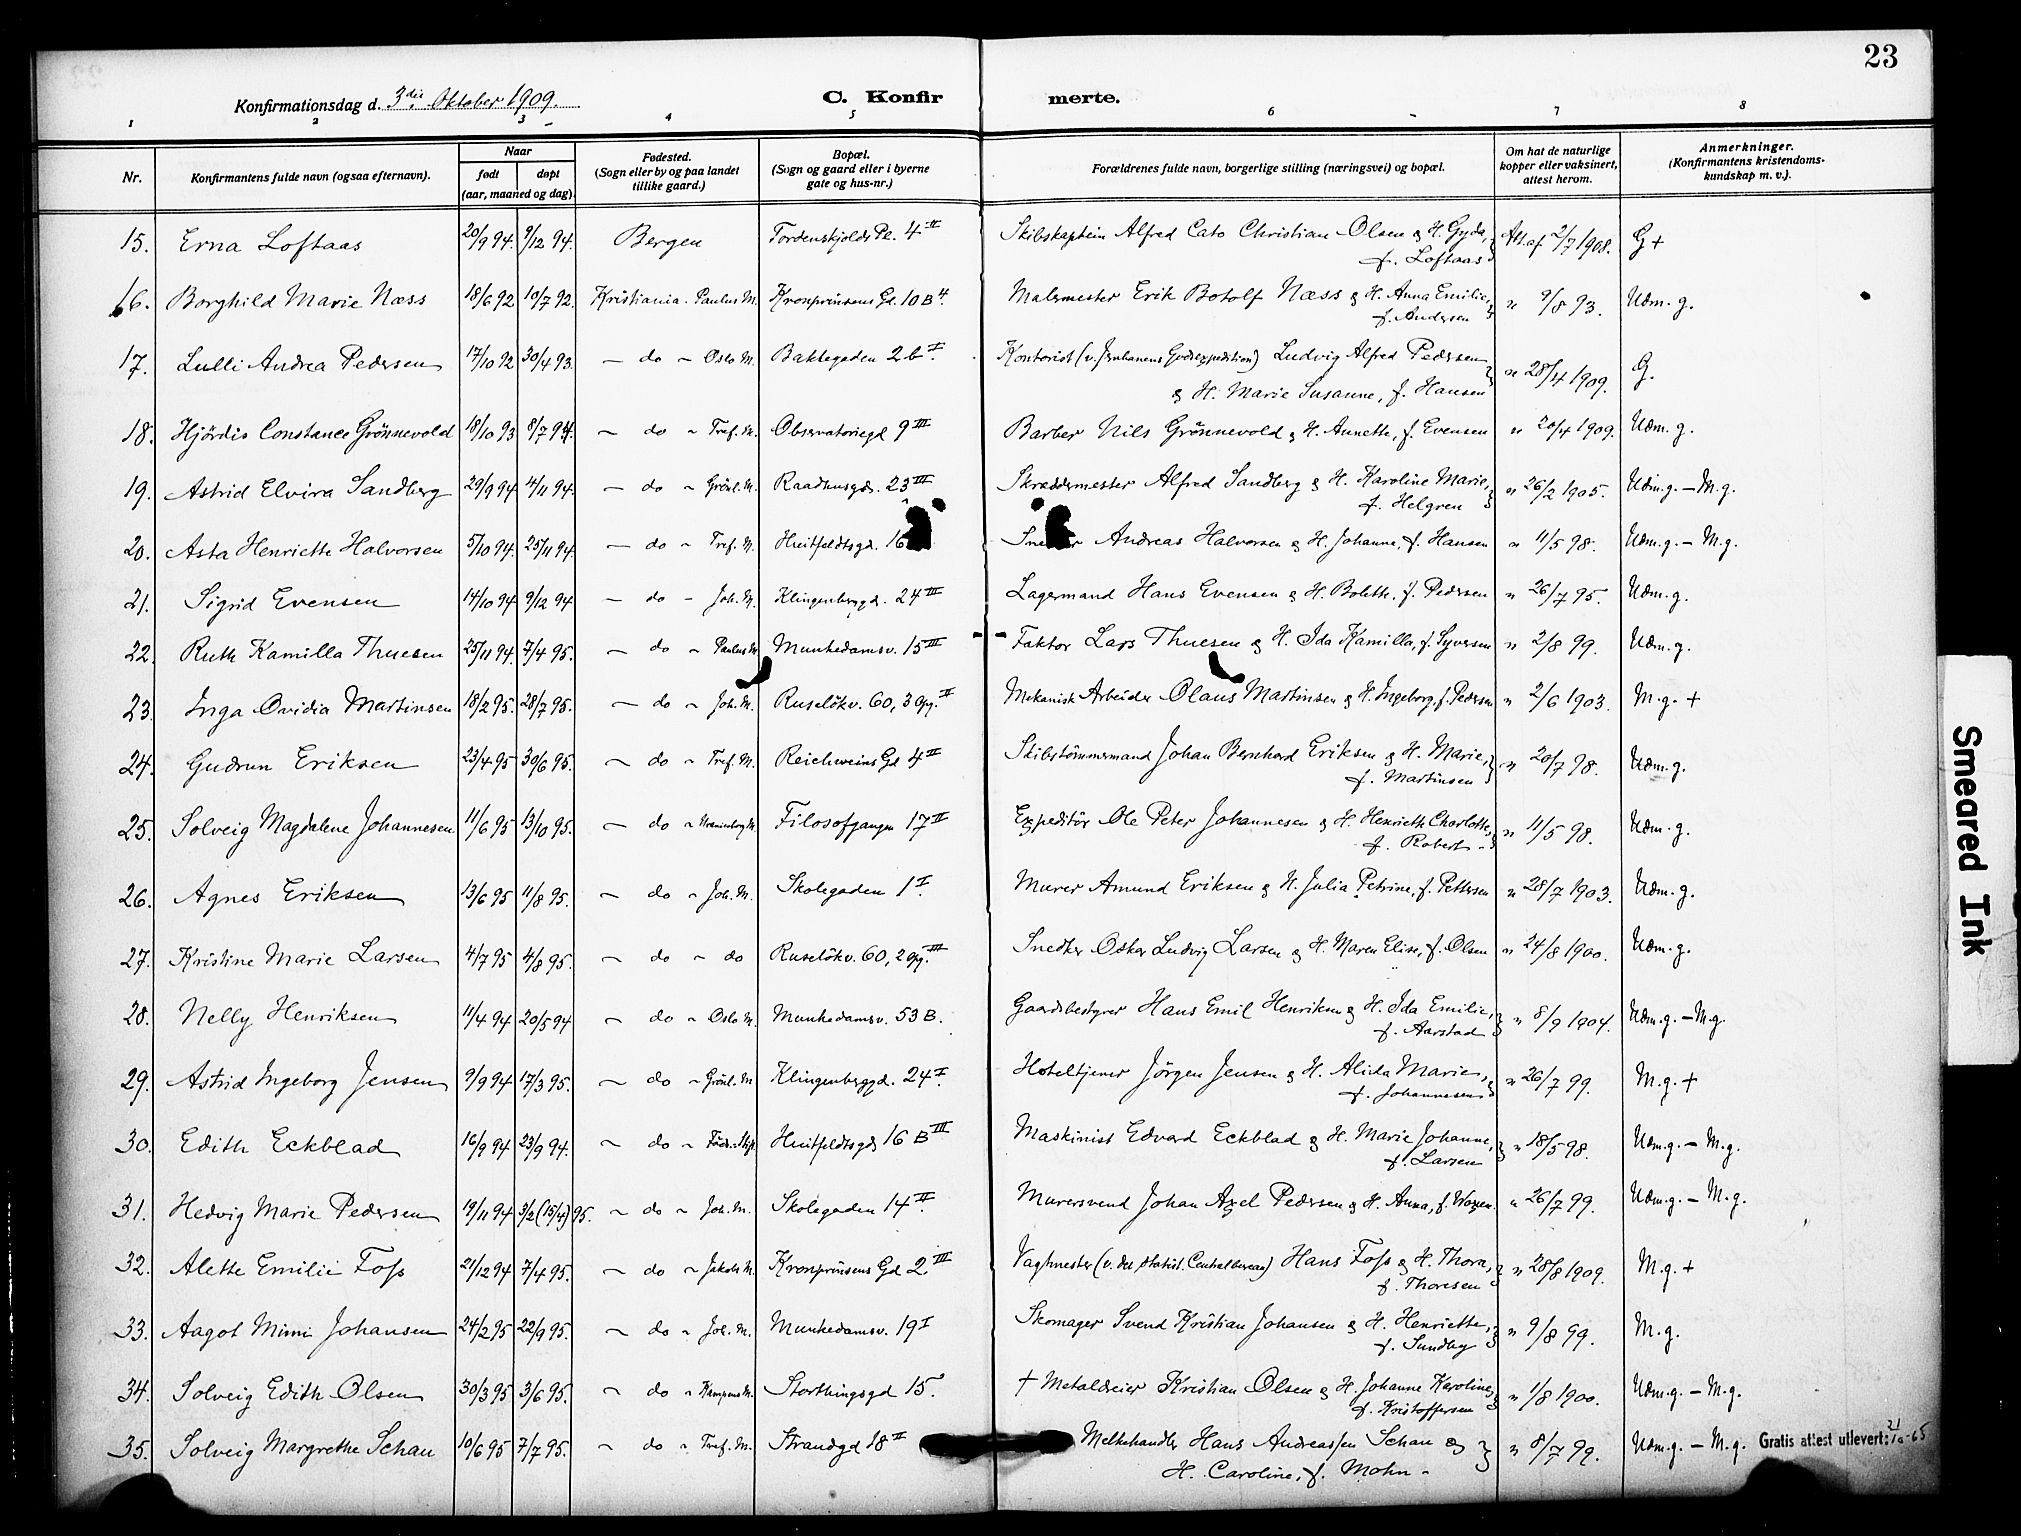 23
Konfirmationsdag d. 3die Oktober 1909.
C. Konfir merte.
1 2 3 4 5 6 7 8
Nr. Konfirmantens fulde navn (ogsaa efternavn). Naar født døpt (aar, maaned og dag). Fødested. (Sogn eller by og paa landet tillike gaard.) Bopæl. (Sogn og gaard eller i byerne gate og hus-nr.) Forældrenes fulde navn, borgerlige stilling (næringsvei) og bopæl. Om hat de naturlige kopper eller vaksinert, attest herom. Anmerkninger. (Konfirmantens kristendomskundskap m. v.).
15. Erna Loftaas 20/9 94. 9/12 94. Bergen Tordenskjolds Pl. 4 II Skibskaptein Alfred Cato Christian Olsen & H. Gyda, f. Loftaas Att. af 2/7 1908. G +
16. Borghild Marie Næss 18/6 92 10/7 92. Kristiania. Paulus M. Kronprinsens Gd. 10 B 4. Malermester Erik Botolf Næss & H. Anna Emilie, f. Andersen " 9/8 93. Udm. g.
17. Lulli Andrea Pedersen 17/10 92 30/4 93. — do " Oslo M. Bakkegaden 26 I. Kontorist (v. Jernbanens Godsexpedition) Ludvig Alfred Pedersen & H. Marie Susanne, f. Hansen " 28/4 1909. G.
18. Hjördis Constance Grönnevold 18/10 93 8/7 94. — do " Tref. M. Observatoriegd 9 III Barber Nils Grönnevold & H. Annette, f. Evensen " 20/4 1909. Udm. g.
19. Astrid Elvira Sandberg 29/9 94 4/11 94. — do " Grönl. M. Raadhusgd. 23 III Skræddermester Alfred Sandberg & H. Karoline Marie, f. Helgren " 26/2 1905. Udm. g. — M. g.
20. Asta Henriette Halvorsen 5/10 94. 25/11 94. — do " Tref. M. Huitfeldtsgd. 16 Andreas Halvorsen & H. Johanne, f. Hansen " 11/5 98. Udm. g. — M. g.
21. Sigrid Evensen 14/10 94 9/12 94 — do — Joh. M. Klingenberggd. 24 III Lagermand Hans Evensen & H. Bolette, f. Pedersen " 26/7 95. Udm. g.
22. Ruth Kamilla Thuesen 25/11 94. 7/4 95. — do " Paulus M. Munkedamsv. 15 III Faktor Lars Thuesen & H. Ida Kamilla, f. Syversen " 2/8 99. Udm. g.
23. Inga Ovidia Martinsen 18/2 95. 28/7 95. — do " Joh. M. Ruselökv. 60, 3 opg. II Mekanisk Arbeider Olaus Martinsen & H. Ingeborg, f. Pedersen " 2/6 1903. M. g. +
24. Gudrun Eriksen 23/4 95 30/6 95. — do " Tref. M. Reichweins Gd 4 II Skibstömmermand Johan Bernhard Eriksen & H. Marie, f. Martinsen " 20/7 98. Udm. g.
25. Solveig Magdalene Johannesen 11/6 95 13/10 95. — do " Uranienborg M. Filosofgangen 17 II Expeditör Ole Peter Johannesen & H. Henriette Charlotte, f. Robert " 11/5 98. Udm. g.
26. Agnes Eriksen 13/6 95 11/8 95. — do " Joh. M. Skolegaden 1 I. Murer Amund Eriksen & H. Julia Petrine, f. Pettersen " 28/7 1903. Udm. g.
27. Kristine Marie Larsen 4/7 95 4/8 95. — do " do Ruselökv. 60, 2 opg. III Snedker Oskar Ludvig Larsen & H. Maren Elise, f. Olsen " 24/8 1900. Udm. g.
28. Nelly Henriksen 11/4 94 20/5 94 — do " Oslo M. Munkedamsv. 53 B. Gaardsbestyrer Hans Emil Henriksen & H. Ida Emilie, f. Aarstad " 8/9 1904. Udm. g. — M. g.
29. Astrid Ingeborg Jensen 9/9 94 17/3 95. — do " Grönl. M. Klingenberggd. 24 I. Hoteltjener Jörgen Jensen & H. Alida Marie, f. Johannesen " 26/7 99. M. g. +
30. Edith Eckblad 16/9 94 23/9 94. — do " Föds. Stift. Huitfeldtsgd 16 B III Maskinist Edvard Eckblad & H. Marie Johanne, f. Larsen " 18/5 98. Udm. g. — M. g.
31. Hedvig Marie Pedersen 19/11 94 3/2 (15/4) 95. — do " Joh. M. Skolegaden 14 II. Murersvend Johan Axel Pedersen & H. Anna, f. " 26/7 99. Udm. g. — M. g.
32. Alette Emilie Foss 21/12 94 7/4 95. — do " Jakobs M. Kronprinsens Gd 2 III Vagtmester (v. det statist. Centralbureau) Hans Foss & H. Thora, f. Thoresen " 28/8 1909. M. g. +
33. Aagot Mimi Johansen 24/2 95 22/9 95. — do " Joh. M. Munkedamsv. 19 I Skomager Svend Kristian Johansen & H. Henriette, f. Sundby " 9/8 99. M. g.
34. Solveig Edith Olsen 30/3 95 3/6 95. — do " Kampens M. Storthingsgd 15. + Metaldreier Kristian Olsen & H. Johanne Karoline, f. Kristoffersen " 1/8 1900. Udm. g. — M. g.
35. Solveig Margrethe Schau 10/6 95 7/7 95. — do " Tref. M. Strandgd 18 II Melkehandler Hans Andreassen Schau og H. Caroline, f. Mohn " 8/7 99. Udm. g. — M. g. Gratis attest utlevert: 21/10-65
Smeared Ink